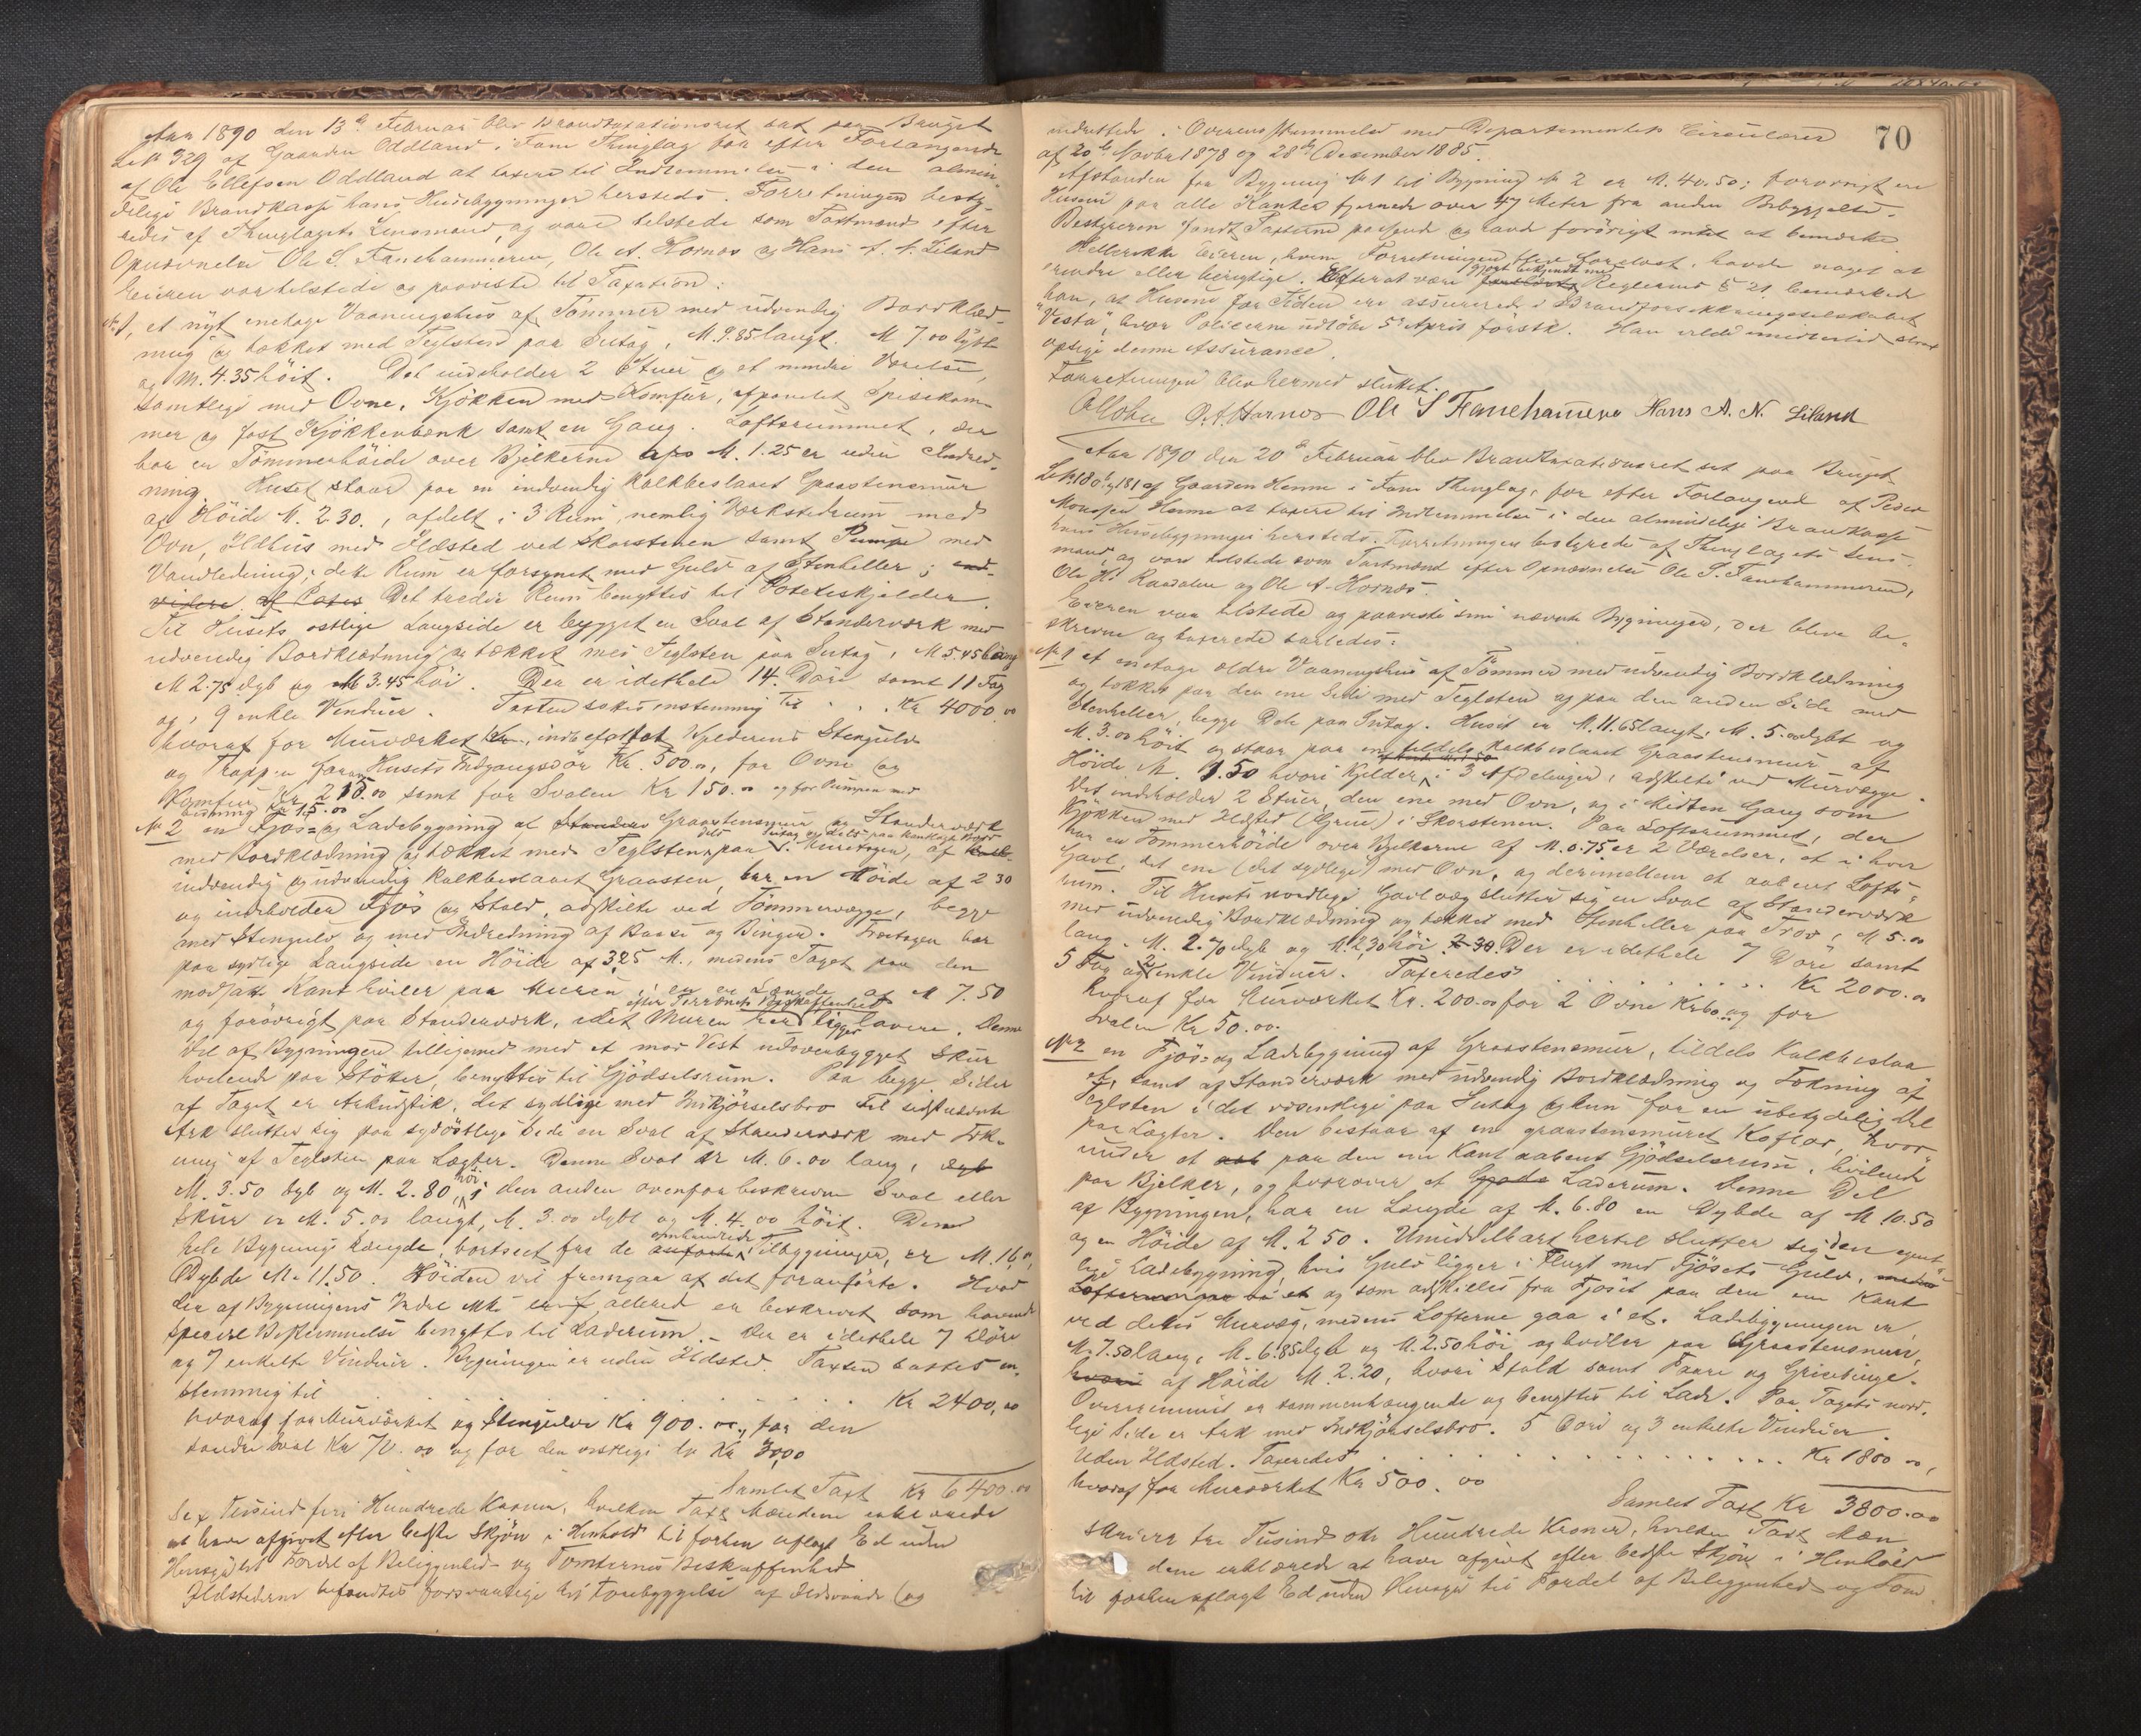 Aar 1890 den 13de Februar blev Brandtaxationsret sat paa Bruget
Le No 329 af Gaarden Oddland i Fane Thinglag for efter Forlangende
af Ole Ellefsen Oddland at taxere til Indlemmelse i den almin-
delige Brandkasse hans Huusbygninger hersteds. Forretningen besty-
redes af Thinglagets Lensmand, og vare tilstede som Taxtmænd efter
Opnævnelse Ole S. Fanehammeren, Ole A. Hornæs og Hans A. N. Liland
Eieren var tilstede og paaviste til Taxation:
No 1, et nyt enetage Vaaningshus af Tömmer med udvendig Bordklæd-
ning og tækket med Teglsten paa Sutag, M. 9.85 langt. M 7.00 dybt
og M. 4.35 höit. Det indeholder 2 Stuer og et mindre Værelse,
samtlige med Ovne, Kjökken med Komfur, afpanelet Spisekam-
mer og fast Kjökkenbænk samt en Gang. Loftsrummet, der
har en Tömmerhöide over Bjelkerne af M. 1.25 er uden Indred-
ning. Huset staar paa en indvendig kalkbeslaaet Graastensmur
af Höide M. 2.30., afdelt i 3 Rum, nemlig Værkstedrum med
Ovn, Ildhus med Ildsted ved Skorstenen samt Pumpe med
Vandledning; dette Rum er forsynet med Gulv af Stenheller; end-
videre af Potes Det tredie Rum benyttes til Poteteskjelder.
Til Husets østlige Langside er bygget en Sval af Stenderværk med
udvendig Bordklædning og tækket med Teglsten paa Sutag, M 5.45 lang
M 2.75 dyb og M 3.45 höi. Der er idethele 14. Döre samt 11 Fag
og 9 enkle Vinduer. Taxten sattes enstemmig til . . . Kr 4000.00
hvoraf for Murværket Kr., indbefattet Kjelderens Stengulv
og Trappen foran Husets Indgangsdör Kr. 500.00, for Ovne og
Komfur Kr 215.00 samt for Svalen Kr 150.00 og for Pumpen med
Ledning Kr 15.00
No 2 en Fjös- og Ladebygning af Stenderv Graastensmur og Stenderværk
med Bordklædning og tækket med Teglsten, paa dels Sutag og dels paa
indvendig og udvendig kalkbeslaaet Graasten, har en Höide af 2 30
og indeholder Fjös og Stald, adskilte ved Tömmervægge, begge
med Stengulv og med Indredning af Baase og Binger. har
paa sydlige Langside en Höide af 3.25 M., medens Taget paa den
modsatte Kant hviler paa Muren i en Længde af M 7.50
efter Terrænets Beskaffenhed
og forövrigt paa Stenderværk, idet Muren her ligger lavere. Denne
Del af Bygningen tilligemed med et mod Vest udovenbygget Skur
hvilende paa Stötter, benyttes til Gjödselsrum. Paa begge Sider
af Taget er Arkudstik, det sydlige med Indkjörselsbro Til sidstnævnte
Ark slutter sig paa sydöstlige Side en Sval af Stenderværk med Tæk-
ning af Teglsten paa Lægter. Denne Sval er M. 6.00 lang, dyb
M. 3.50 dyb og M. 2.80 höi, den anden ovenfor beskrevne Sval eller
Skur er M. 5.00 langt, M. 3.00 dybt og M. 4.00 höit. Den
hele Bygnings Længde, bortseet fra de anførte omhandlede Tilbygninger, er M. 16.00,
Dybde M. 11.50. Höiden vil fremgaa af det foranförte. Hvad
der af Bygningens Indre ikke er allered er beskrevet som havende
speciel Bestemmelse benyttes til Laderum. - Der er idethele 7 Döre
og 7 enkelte Vinduer. Bygningen er uden Ildsted. Taxten sattes en-
stemmig til . . . . . . . . Kr 2400,00
hvoraf for Murværket og Stengulve Kr 900.00, for den
söndre Sval Kr 70.00 og for den vestlige to Kr 30,00
Samlet Taxt Kr 6400.00
Sex Tusind fire Hundrede Kroner, hvilken Taxt Mændene erklærede
at have afgivet efter bedste Skjön i Henhold til forhen aflagt Ed uden
Hensyn til Fordel af Beliggenhed og Tomternes Beskaffenhed
Ildstederne befandtes forsvarlige til Forebyggelse af Ildsvaade og
70
indrettede i Overensstemmelse med Departementets Circulærer
af 20de Novbr 1878 og 28de December 1885.
Afstanden fra Bygning No 1 til Bygning No 2 er M. 40.50; forövrigt ere
Husene paa alle Kanter fjernede over 47 Meter fra anden Bebyggelse.
Bestyreren fandt Taxterne passende og havde forövrigt intet at bemærke
Hellerikke Eieren, hvem Forretningen blev forelæst, havde noget at
erindre eller berigtige. Efterat være gjort bekjendt med forelæst Reglernes § 21 bemærkede
han, at Husene for Tiden ere assurerede i Brandforsikkringsselskabet
"Vesta", hvor Policerne udlöbe 5te April förstk. Han vilde imidlertid strax
opsige denne Assurance.
Forretningen blev hermed sluttet.
O. A. Hornæs Ole S Fanehammeren Hans A. N. Liland
Aar 1890 den 20de Februar blev Brandtaxationsret sat paa Bruget
Le No 180 & 181 af Gaarden Henne i Fane Thinglag, for efter Forlangende af Peder
Monssen Henne at taxere til Indlemmelse i den almindelige Brandkasse
hans Husebygninger hersteds. Forretningen bestyredes af Thinglagets Lens-
mand, og vare tilstede som Taxtmænd efter Opnævnelse Ole S. Fanehammeren,
Ole H. Raadalen og Ole A. Hornæs.
Eieren var tilstede og paaviste sine nævnte Bygninger, der bleve be-
skrevne og taxerede saaledes:
No 1 et enetage ældre Vaaningshus af Tömmer med udvendig Bordklædning
og tækket paa den ene Side med Teglsten og paa den anden Side med
Stenheller, begge Dele paa Sutag. Huset er M. 11.65 langt, M. 5.00 dybt og
M. 3.00 höit og staar paa en tildels kalkbeslaaet Graastensmur af
Höide M. 1.50 hvori Kjelder i 3 Afdelinger, adskilte ved Murvægge.
Det indeholder 2 Stuer, den ene med Ovn, og i Midten Gang som
Kjökken med Ildsted (Grue) i Skorstenen. Paa Loftsrummet, der
har en Tömmerhöide over Bjelkerne af M. 0.75, er 2 Værelser, et i hver
Gavl, det ene (det sydlige) med Ovn, og derimellem et aabent Lofts-
rum. Til Husets nordlige Gavlvæg slutter sig en Sval af Stenderværk
med udvendig Bordklædning og tækket med Stenheller paa Trov, M 5.00
lang. M. 2.70 dyb og M. 2,30 höi 2.30. Der er idethele 7 Döre samt
5 Fag og 2 enkle Vinduer. Taxeredes . . . . . . . . Kr 2000.00
hvoraf for Murværket Kr. 200.00 for 2 Ovne Kr 60.00 og for
Svalen Kr 50.00.
No 2 en Fjös- og Ladebygning af Graastensmur, tildels Kalkbeslaa
et, samt af Stenderværk med udvendig Bordklædning og Tækning af
Teglsten i det væsentlige paa Sutag og kun for en ubetydelig Del
paa Lægter. Den bestaar af en graastensmuret Kofjös, hvor-
under et aab paa den ene Kant aabent Gjödselsrum, hvilende
paa Bjelker, og hvorover et Laderum. Denne Del
af Bygningen, har en Længde af M. 6.80 en Dybde af M 10.50
og en Höide af M. 2 50. Umiddelbart hertil slutter sig den egent-
lige Ladebygning, hvis Gulv ligger i Flugt med Fjösets Gulv, medens
Lofterne gaa i et og som adskilles fra Fjöset paa den ene Kant
ved dettes Murvæg, medens Lofterne gaa i et. Ladebygningen er
M. 7.50 lang, M. 6.85 dyb og M. 2.50 höi og hviler paa Graastensmur,
hvori af Höide M. 2.20, hvori Stald samt Faare og Grisebinge.
Overrummet er sammenhængende og benyttes til Lade. Paa Tagets nord-
lige Side er Ark med Indkjörselsbro. 5 Döre og 3 enkelte Vinduer.
Uden Ildsted. Taxeredes . . . . . . . . . . Kr 1800 00,
hvoraf for Murværket Kr 500.00
Samlet Taxt Kr 3800.00
skriver tre Tusind otte Hundrede Kroner, hvilken Taxt Mæn
dene erklærede at have afgivet efter bedste Skjön i Henhold
til forhen aflagt Ed uden Hensyn til Fordel af Beliggenhed og Tom